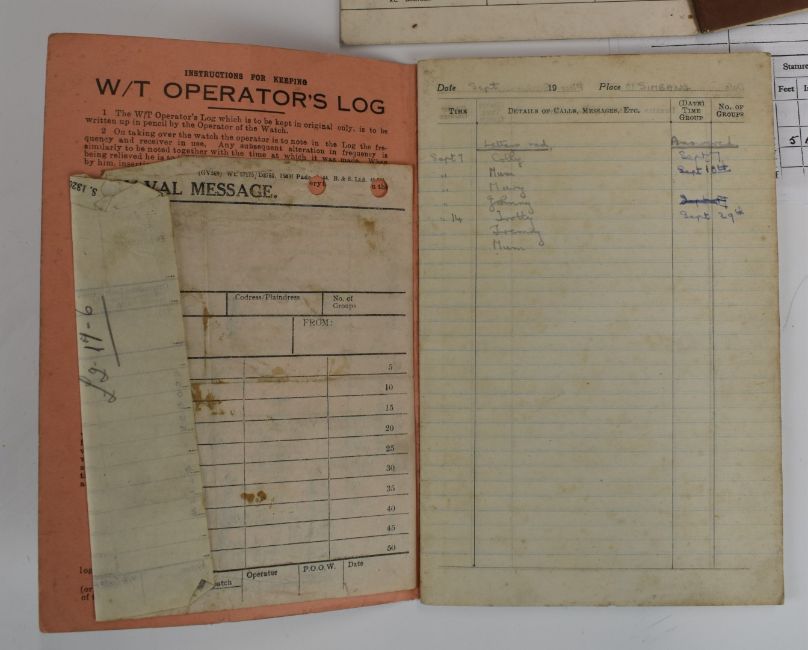 INSTRUCTIONS FOR KEEPING
W/T OPERATOR'S LOG
1 The W/T Operator's Log which is to be kept in original only, is to be
written up in pencil by the Operator of the Watch.
2 On taking over the watch the operator is to note in the Log the fre-
quency and receiver in use. Any subsequent alteration in frequency is
similarly to be noted together with the time at which it was made. When
being relieved he is to
by him, inserti
VAL MESSAGE.
Codress/Plaindress No. of
Groups
FROM:
5
10
15
20
25
30
35
40
45
50
atch Operator P.O.O.W. Date
£2-17-6
Date Sept 19 Place
TIME DETAILS OF CALLS, MESSAGES, ETC. (DATE) TIME GROUP NO. OF GROUPS
Letters recd. Answered
Sept 7 Colly Sept 7
" Mum Sept 10th
" Mary
" Johnny
" 14 Trotty Sept 29th
" 
" Mum
Stature
Feet
5